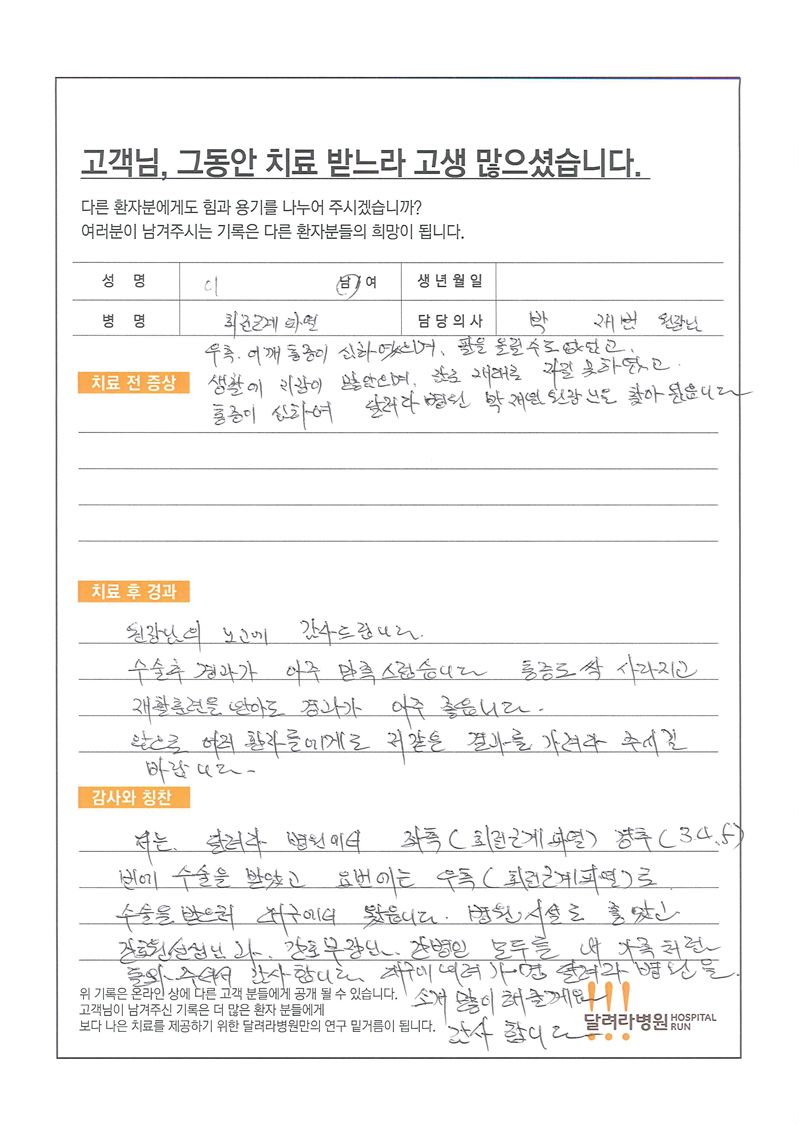 고객님, 그동안 치료 받느라 고생 많으셨습니다.
다른 환자분에게도 힘과 용기를 나누어 주시겠습니까?
여러분이 남겨주시는 기록은 다른 환자분들의 희망이 됩니다.
성 명 이 남/여 생년월일
병 명 회전근개 파열 담당의사 박 재번 원장님
우측 어깨 통증이 심하였으며, 팔을 올릴수도 없었고,
치료 전 증상
생활에 지장이 많았으며, 잠도 제대로 자질 못하였고
통증이 심하여 달려라 병원 박재연 원장님을 찾아 왔읍니다
치료 후 경과
원장님의 노고에 감사드립니다.
수술후 경과가 아주 만족스럽습니다 통증도 싹 사라지고
재활훈련을 받아도 경과가 아주 좋읍니다.
앞으로 여러 환자들에게도 저같은 결과를 가려다 주시길
바랍니다-
감사와 칭찬
저는, 달려라 병원에서 좌측(회전근개파열) 경추(3 4, 5)
번에 수술을 받았고 요번에는 우측(회전근개파열)로
수술을 받으러 대구에서 왔읍니다. 병원시설도 좋았고
간호원선생님과, 간호부장님, 간병인 모두를 내 가족처럼
돌봐 주셔서 감사합니다. 대구에 내려가면 달려라 병원을
위 기록은 온라인 상에 다른 고객 분들에게 공개 될 수 있습니다.
소개 많이 해줄께요
고객님이 남겨주신 기록은 더 많은 환자 분들에게
보다 나은 치료를 제공하기 위한 달려라병원만의 연구 밑거름이 됩니다.
감사 합니다
달려라병원 HOSPITAL RUN